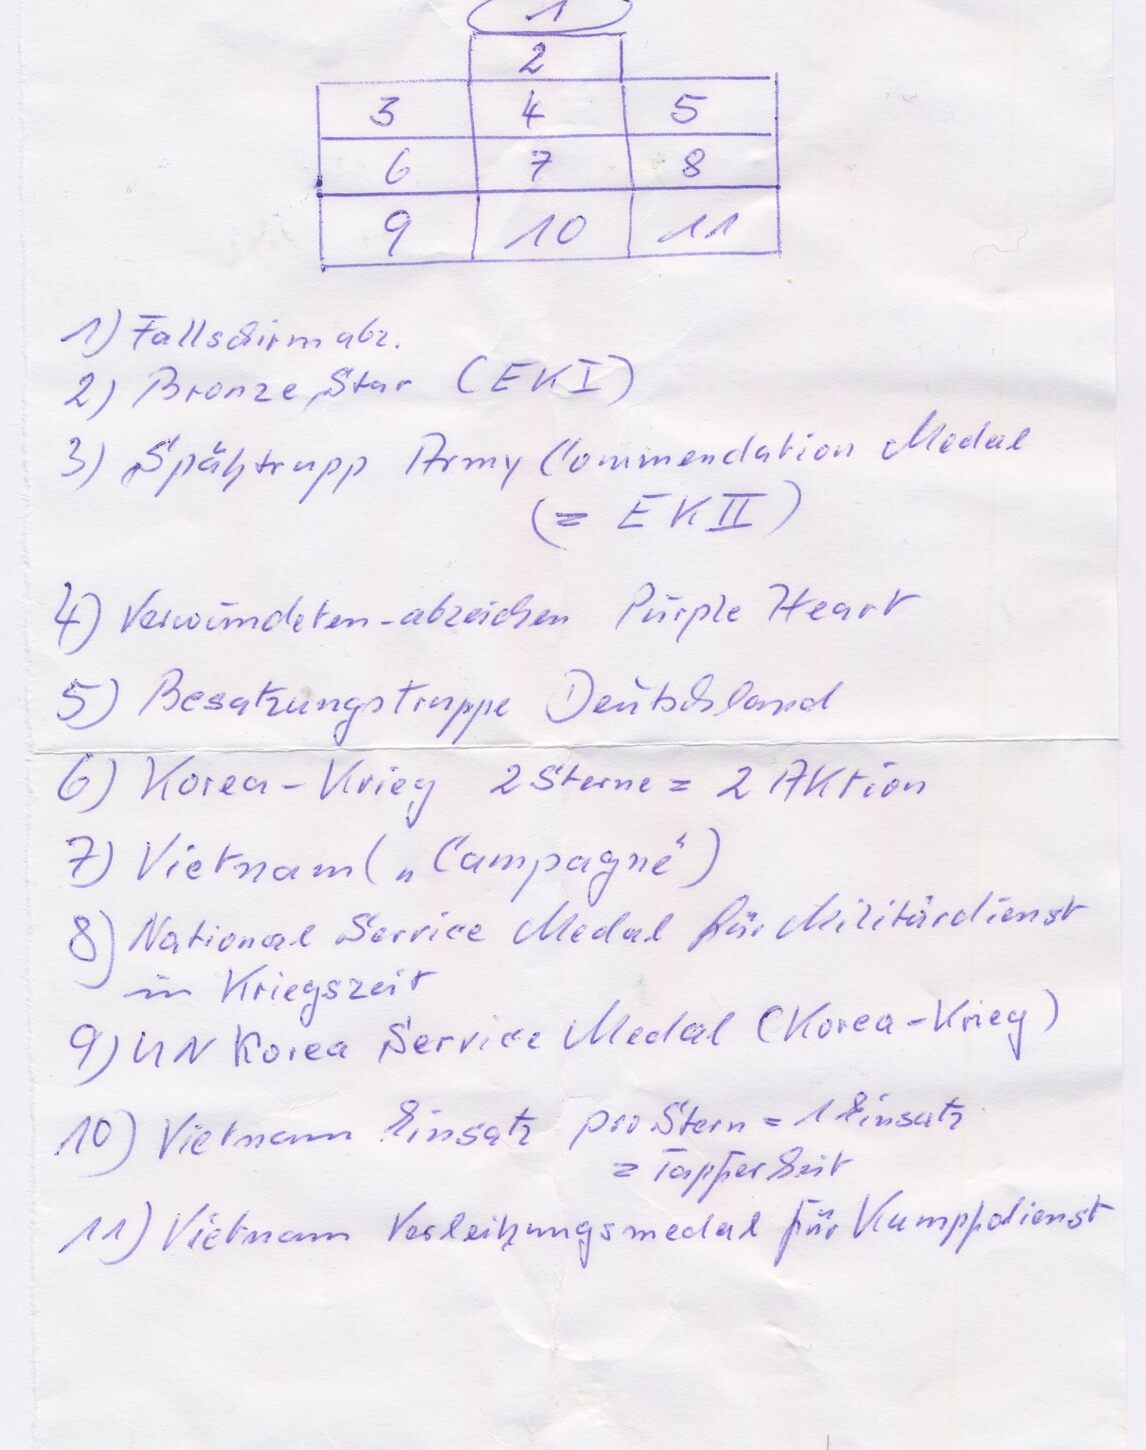 1
2
3 4 5
6 7 8
9 10 11
1) Fallschirmabz.
2) Bronze Star (EK I)
3) Spähtrupp Army Commendation Medal
(= EK II)
4) Verwundeten-abzeichen Purple Heart
5) Besatzungstruppe Deutschland
6) Korea-Krieg 2 Sterne = 2 Aktion
7) Vietnam („Campagne“)
8) National Service Medal für Militärdienst
in Kriegszeit
9) UN Korea Service Medal (Korea-Krieg)
10) Vietnam Einsatz pro Stern = 1 Einsatz
= Tapferkeit
11) Vietnam Verleihungsmedal für Kampfdienst